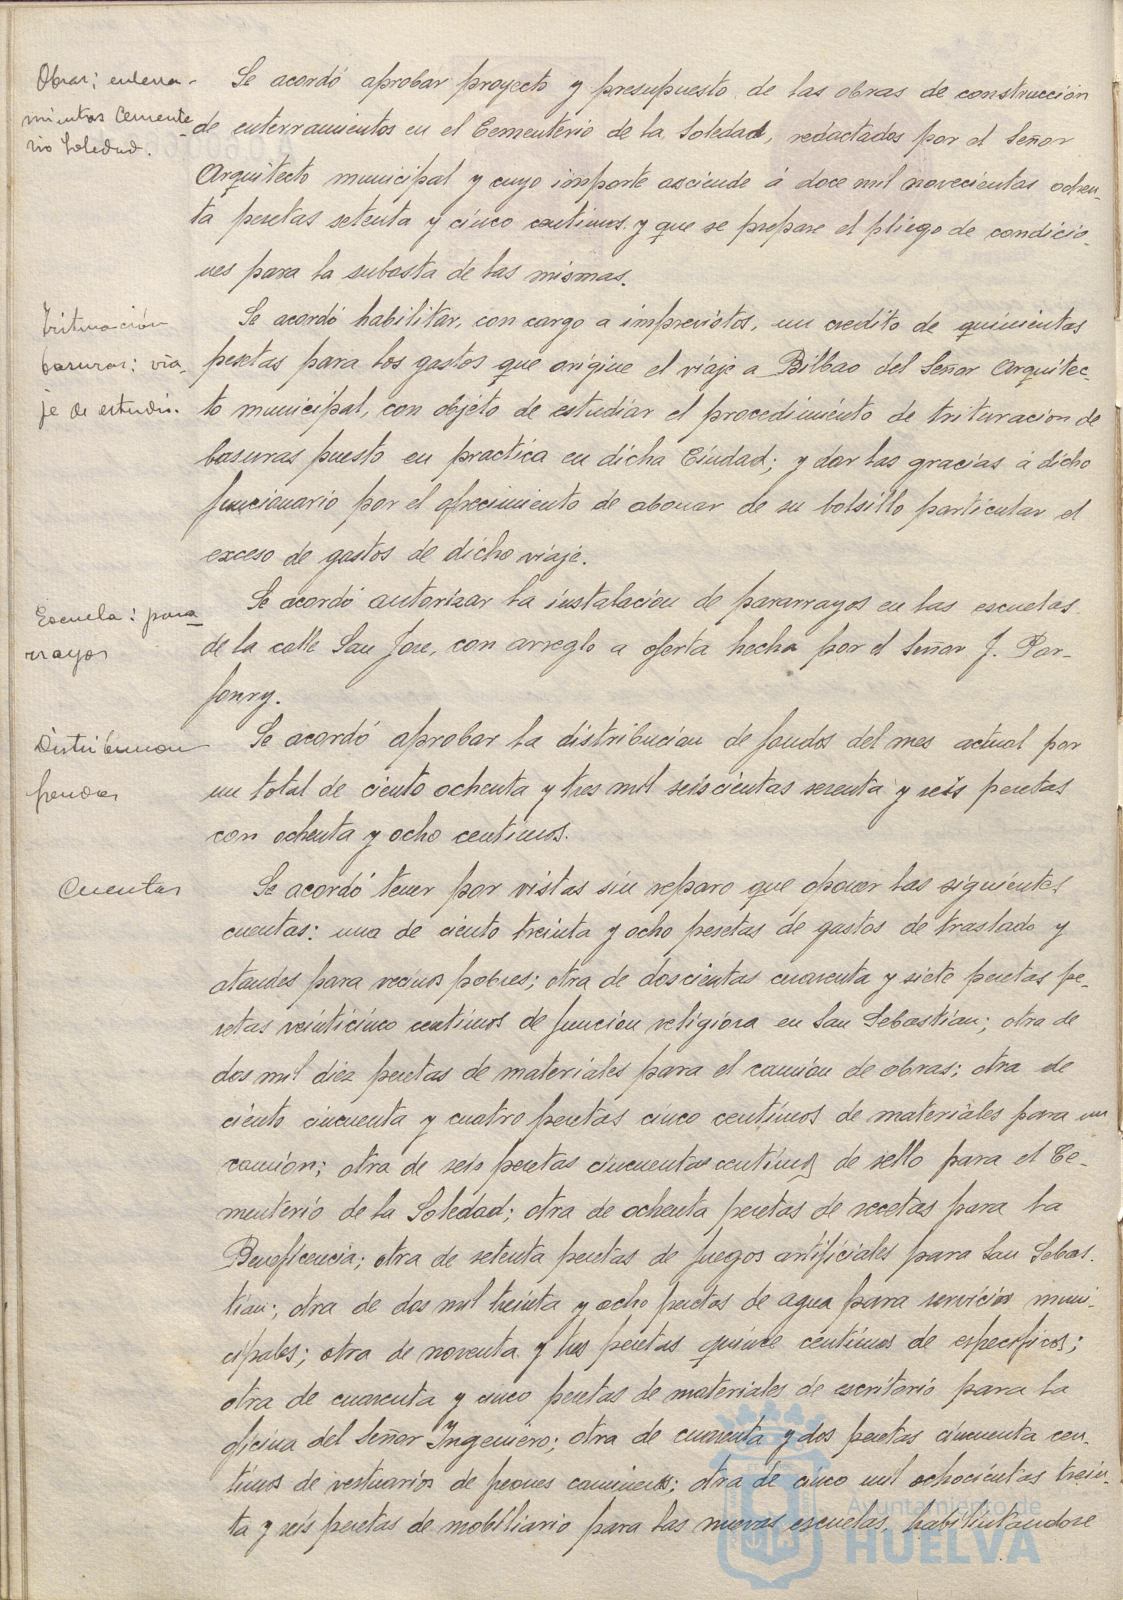 Obras; enterra-
mientos Cemente-
rio Soledad.
Se acordó aprobar proyecto y presupuesto de las obras de construcción
de enterramientos en el Cementerio de la Soledad, redactados por el Señor
Arquitecto municipal y cuyo importe asciende á doce mil novecientas ochen-
ta pesetas setenta y cinco centimos. y que se prepare el pliego de condicio-
nes para la subasta de las mismas.
Trituración
basuras: via-
je de estudio.
Se acordó habilitar, con cargo a imprevistos, un credito de quinientas
pesetas para los gastos que origine el viaje a Bilbao del Señor Arquitec-
to municipal, con objeto de estudiar el procedimiento de trituracion de
basuras puesto en practica en dicha Ciudad; y dar las gracias á dicho
funcionario por el ofrecimiento de abonar de su bolsillo particular el
exceso de gastos de dicho viaje.
Escuela: para-
rrayos
Se acordó autorizar la instalacion de pararrayos en las escuelas
de la calle San Jose, con arreglo a oferta hecha por el Señor J. Par-
fonry.
Distribucion
fondos
Se acordó aprobar la distribucion de fondos del mes actual por
un total de ciento ochenta y tres mil seiscientas sesenta y seis pesetas
con ochenta y ocho centimos.
Cuentas
Se acordó tener por vistas sin reparo que oponer las siguientes
cuentas: una de ciento treinta y ocho pesetas de gastos de traslado y
ataudes para vecinos pobres; otra de doscientas cuarenta y siete pesetas pe-
setas veinticinco centimos de funcion religiosa en San Sebastian; otra de
dos mil diez pesetas de materiales para el camión de obras; otra de
ciento cincuenta y cuatro pesetas cinco centimos de materiales para un
camión; otra de seis pesetas cincuenta centimos de sello para el Ce-
menterio de la Soledad; otra de ochenta pesetas de recetas para la
Beneficencia; otra de setenta pesetas de fuegos artificiales para San Sebas-
tian; otra de dos mil treinta y ocho pesetas de agua para servicios muni-
cipales; otra de noventa y tres pesetas quince centimos de especificos;
otra de cuarenta y cinco pesetas de materiales de escritorio para la
oficina del Señor Ingeniero; otra de cuarenta y dos pesetas cincuenta cen-
timos de vestuarios de peones camineros; otra de cinco mil ochocientas trein-
ta y seis pesetas de mobiliario para las nuevas escuelas, habilitandose
Ayuntamiento de
HUELVA